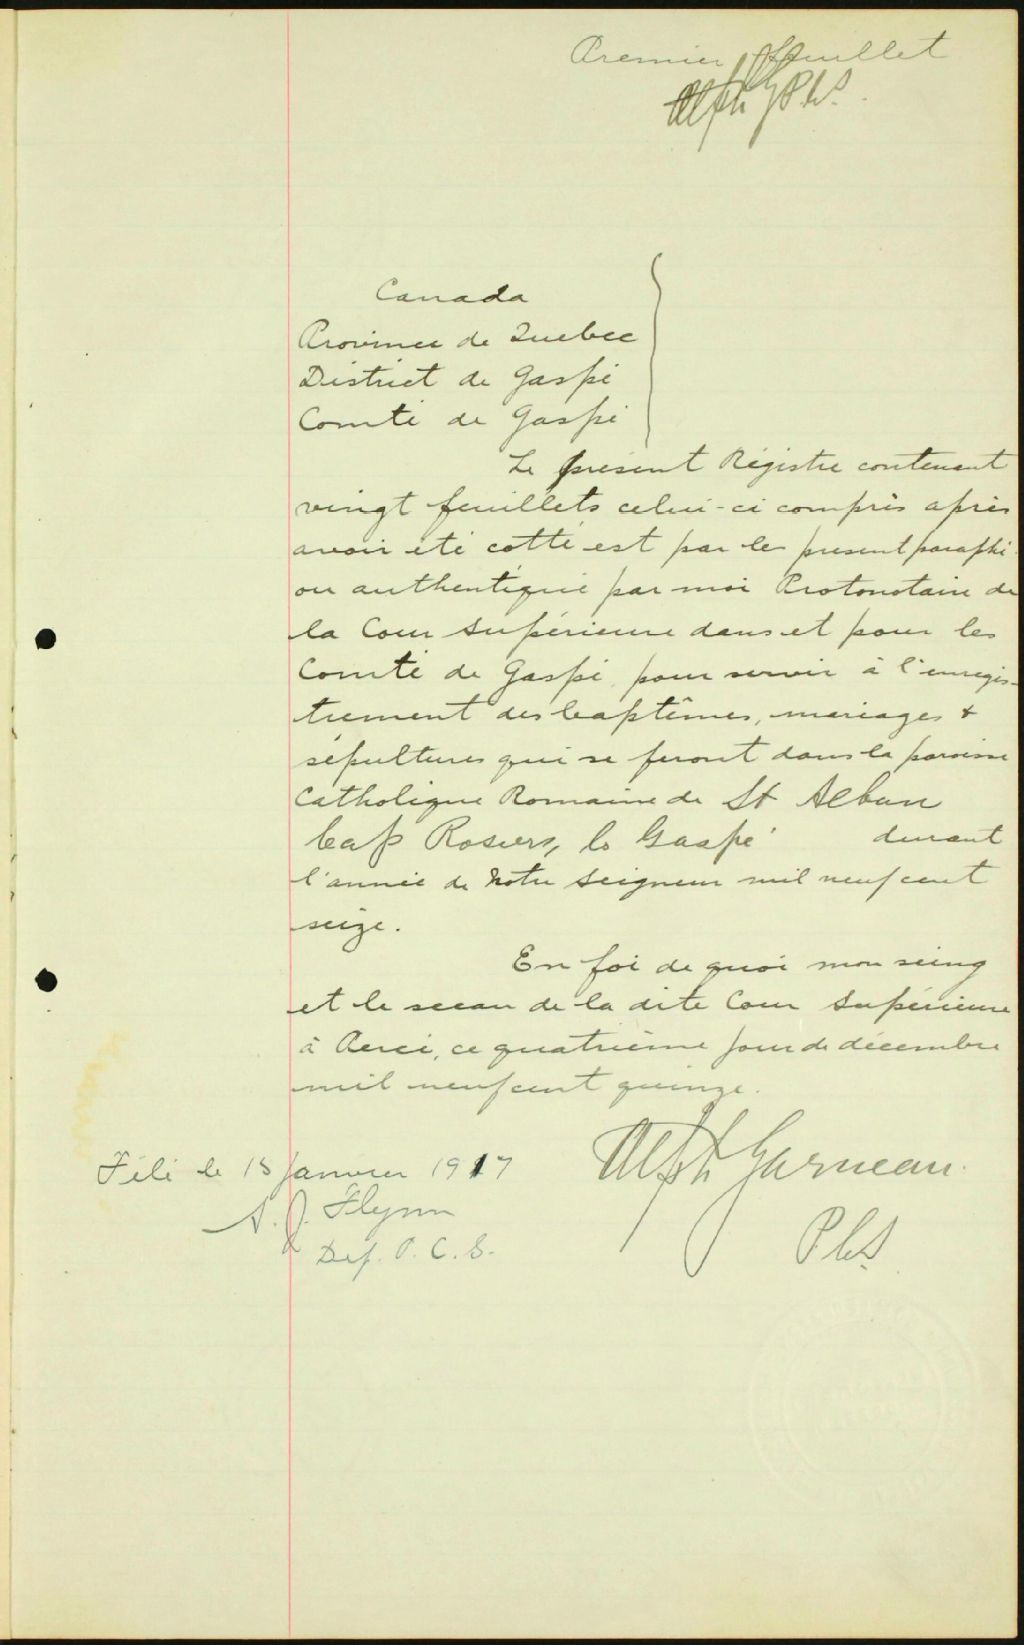 Premier feuillet
Alph G P.C.S.
Canada
Province de Quebec
District de Gaspé
Comté de Gaspé
Le présent Régistre contenant
vingt feuillets celui-ci compris après
avoir été cotté est par les present paraphé
ou authentiqué par moi Protonotaire de
la Cour Supérieure dans et pour les
Comté de Gaspé pour servir à l'enregis-
trement des baptêmes, mariages &
sépultures qui se feront dans la paroisse
Catholique Romaine de St Alban
Cap Rosiers, Co Gaspé durant
l'année de Notre Seigneur mil neuf cent
seize.
En foi de quoi mon seing
et le sceau de la dite Cour Supérieure
à Percé, ce quatrième jour de décembre
mil neuf cent quinze.
Alph Garneau
PCS
Filé le 15 Janvier 1917
A. J. Flynn
Dep. P. C. S.